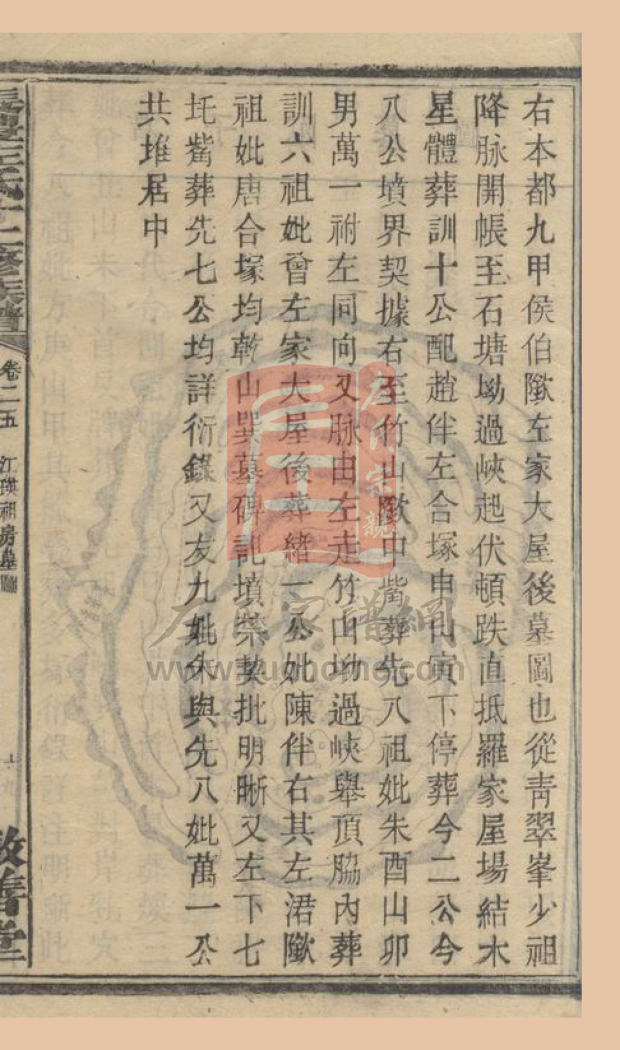 右本都九甲侯伯歟左家大屋後墓圖也從靑翠峯少祖
降脉開帳至石塘坳過峽起伏頓跌直抵羅家屋場結木
星體葬訓十公配趙伴左合塚申山寅下停葬今二公今
八公墳界契據右至竹山歟中觜葬先八祖妣朱酉山卯
男萬一祔左同向又脉由左走竹山坳過峽舉頂脇內葬
訓六祖妣曾左家大屋後葬緒一公妣陳伴右其左涒歟
祖妣唐合塚均乾山巽墓碑記墳禁契批明晰又左下七
坵觜葬先七公均詳衍錄又友九妣朱與先八妣萬一公
共堆居中
左氏十二修族譜
卷二五
江瑛祖房墓圖
敦善堂
左門宗親
左氏家譜網
www.zuohome.com